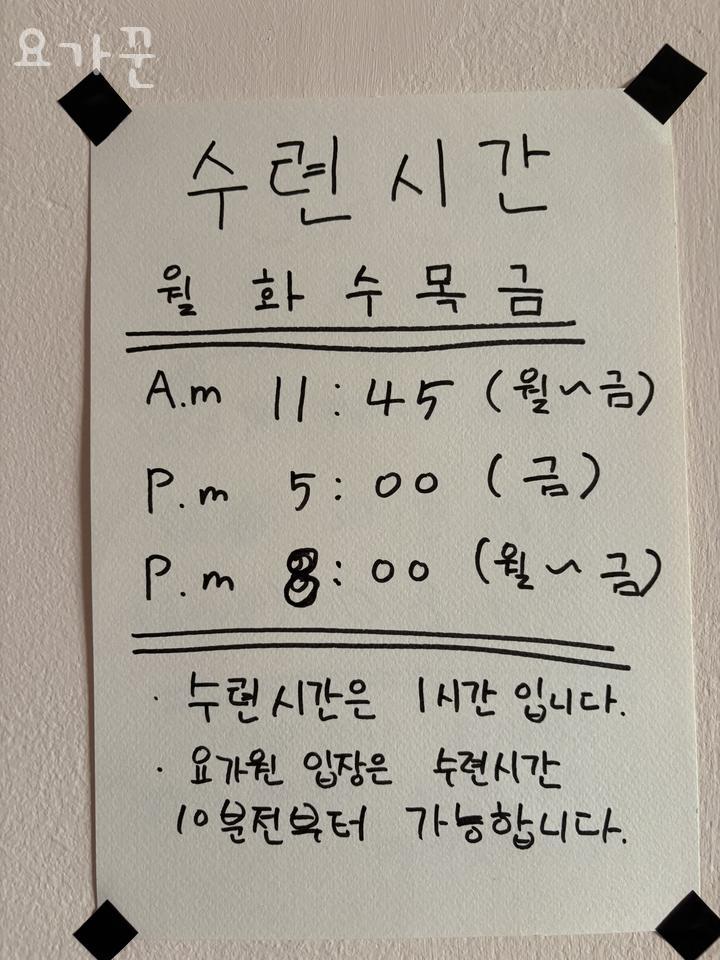 요가꾼
수련 시간
월 화 수 목 금
A.m 11:45 (월~금)
P.m 5:00 (금)
P.m 8:00 (월~금)
· 수련시간은 1시간 입니다.
· 요가원 입장은 수련시간
10분전부터 가능합니다.